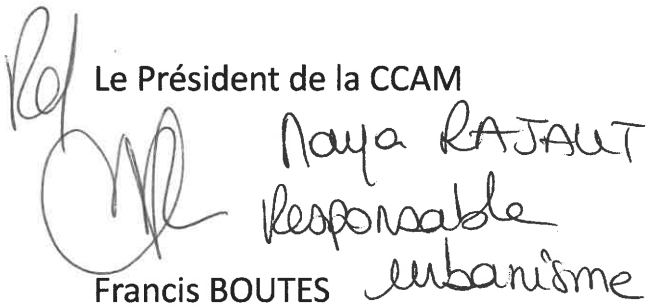 Le Président de la CCAM
Naya RAJAUT
Responsable
urbanisme
Francis BOUTES